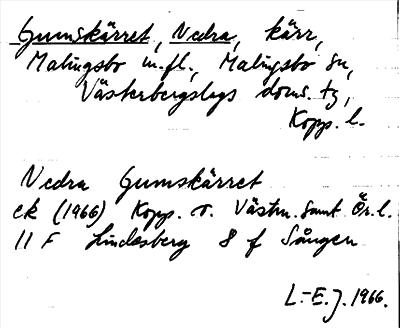 Gumskärret, Nedra, kärr,
Malingsbo m.fl., Malingsbo sn,
Västerbergslags doms. tg,
Kopp. l.
Nedra Gumskärret
ek (1966) Kopp. o. Västm. samt Ör. l.
11 F Lindesberg 8 f Sången
L.-E.J. 1966.